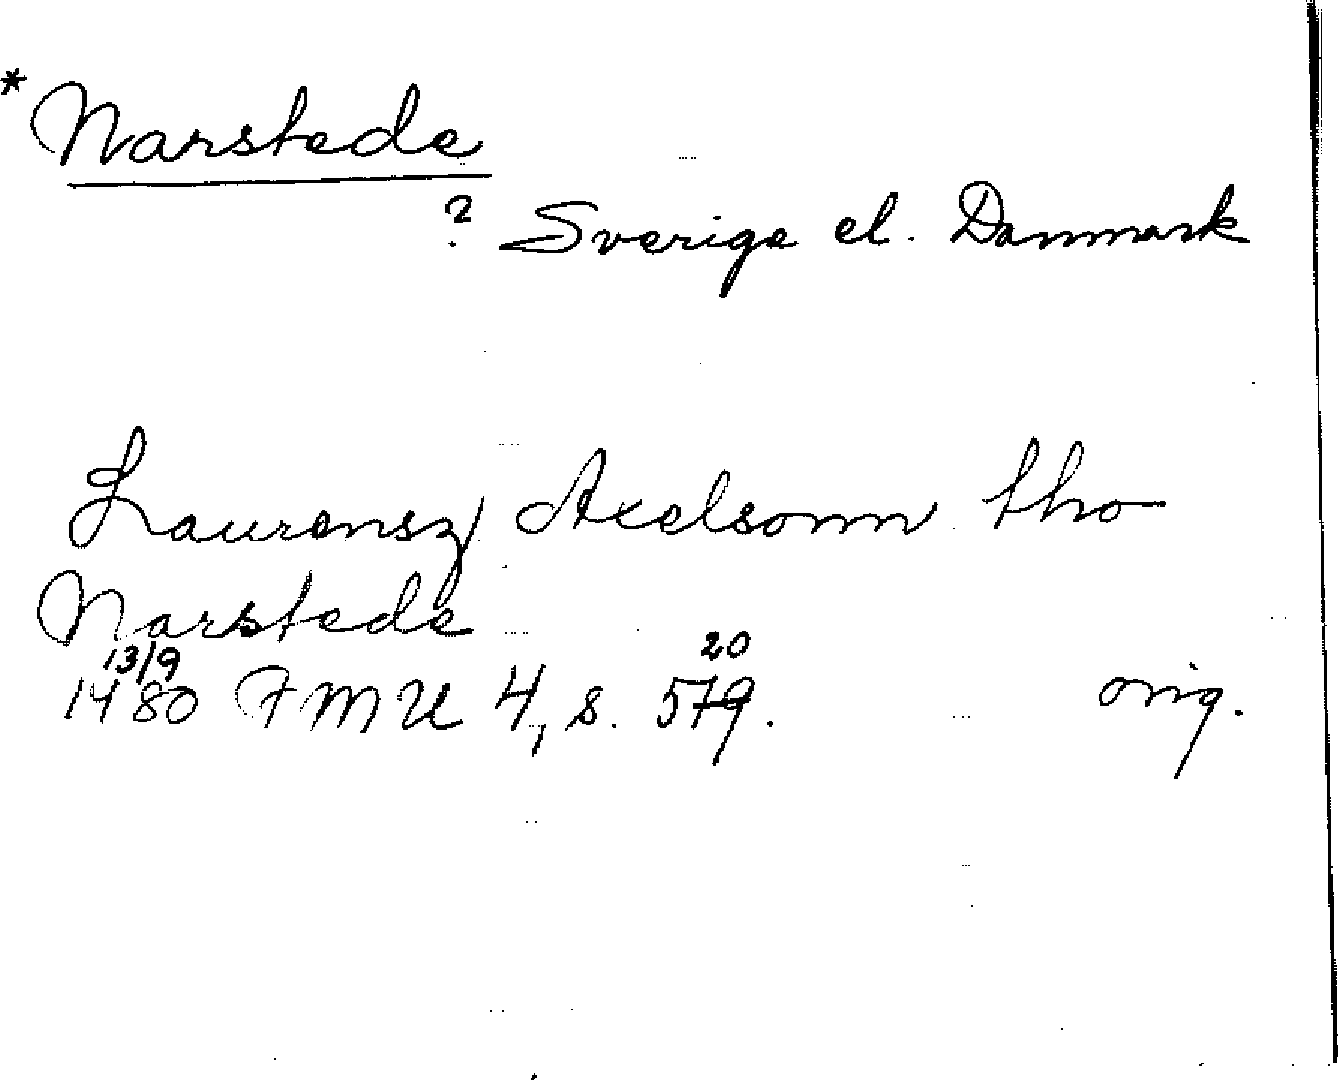 *Narstede
? Sverige el. Danmark
Laurensz Axelsonn tho
Narstede
13/9 20
1480 FMU 4, s. 579. orig.